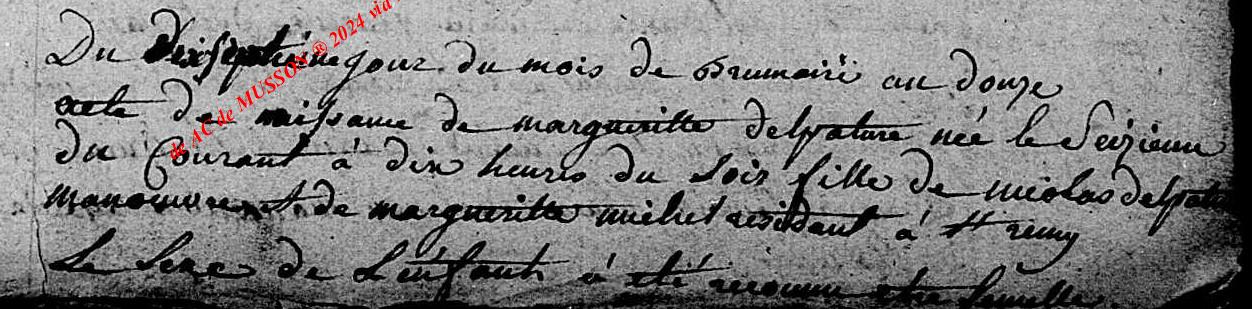 Du dixseptieme jour du mois de Brumaire an douze
acte de naissance de margueritte delpature née le Seizieme
du Courant à dix heures du soir fille de nicolas delpature
manoeuvre et de margueritte michel residant à St remy
Le sexe de L'enfant à été reconnu etre femelle
de AC de MUSSON ® 2024 via